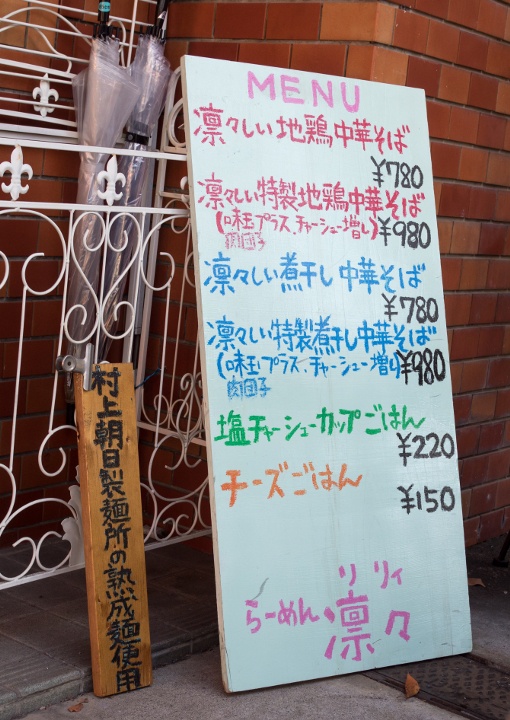 MENU
凛々しい地鶏中華そば
¥780
凛々しい特製地鶏中華そば
(味玉プラス、チャーシュー増し)
肉団子
¥980
凛々しい煮干し中華そば
¥780
凛々しい特製煮干し中華そば
(味玉プラス、チャーシュー増し)
肉団子
¥980
塩チャーシューカップごはん
¥220
チーズごはん
¥150
リリィ
らーめん 凛々
村上朝日製麺所の熟成麺使用